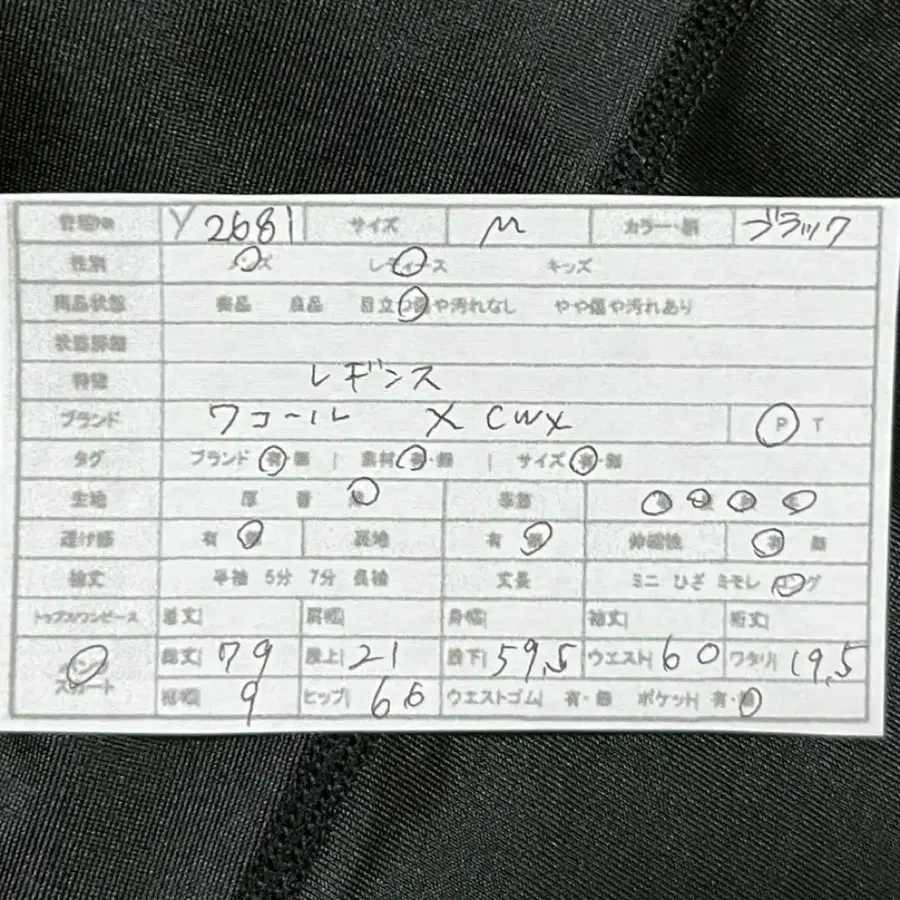 管理No Y 2681 サイズ M カラー・柄 ブラック
性別 メンズ レディース キッズ
商品状態 美品 良品 目立つ傷や汚れなし やや傷や汚れあり
状態詳細
特徴 レギンス
ブランド ワコール X CWX P T
タグ ブランド 有・無 | 素材 有・無 | サイズ 有・無
生地 厚 普 季節
透け感 有 裏地 有 伸縮性 有 無
袖丈 半袖 5分 7分 長袖 丈長 ミニ ひざ ミモレ ロング
トップス/ワンピース 着丈| 肩幅| 身幅| 袖丈| 裄丈|
パンツ 総丈| 79 股上| 21 股下| 59,5 ウエスト| 60 ワタリ| 19,5
スカート 裾幅| 9 ヒップ| 66 ウエストゴム| 有・無 ポケット| 有・無